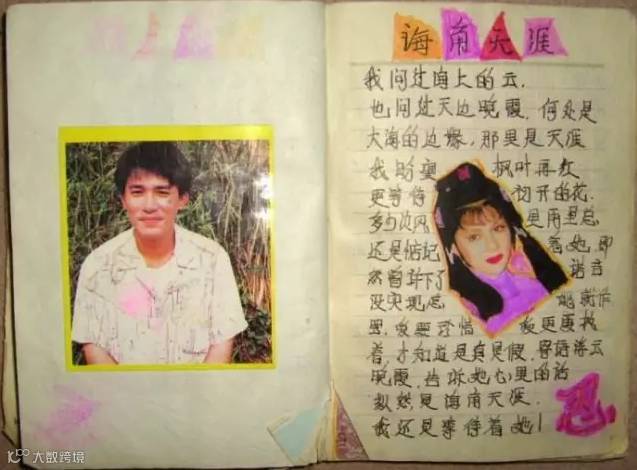 诲角天涯
我问过海上的云.
也问过天边晚霞, 何处是
大海的边缘, 那里是天涯
我盼望 枫叶再红
更等待 初开的花.
多少次风 里雨里总
还是惦记 着她, 即
然曾许下了 诺言
没实现怎 能就作
罢, 我要珍惜 我更要执
着, 才知道是真是假, 浮云
晚霞, 告诉她心里的话
纵然是海角天涯.
我还是等待着她!
忍
大数跨境